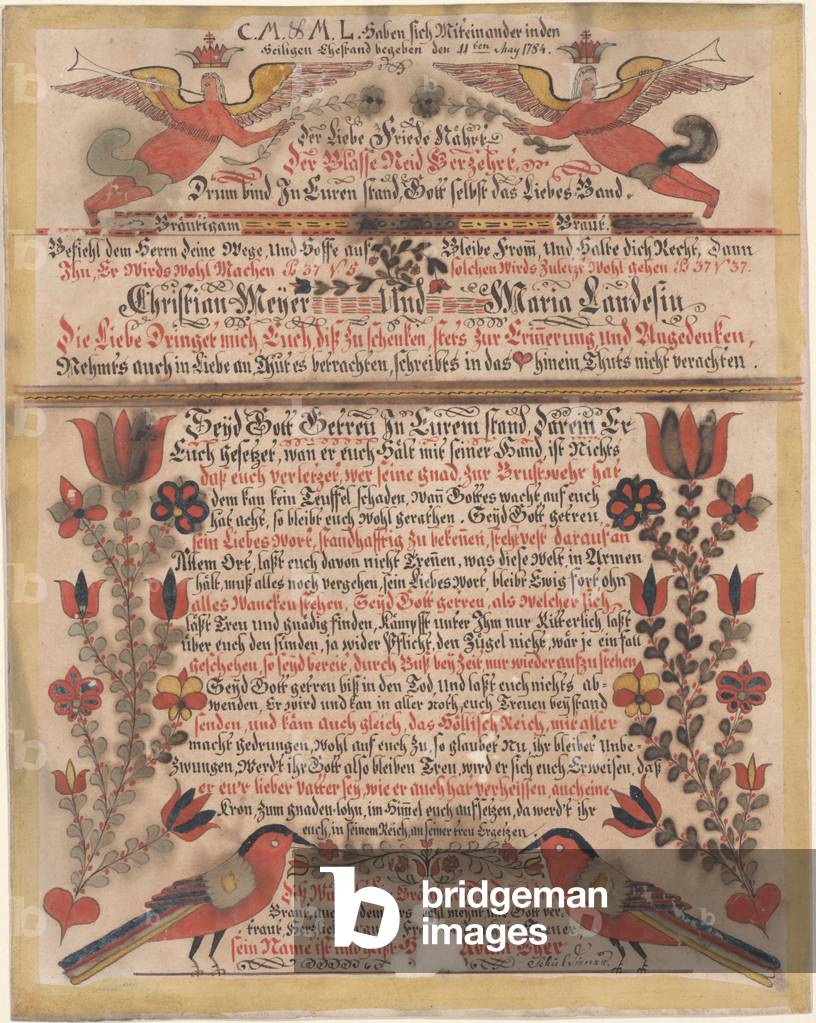 C. M. & M. L. Haben sich Miteinander in den
Heiligen Ehestand begeben den 11ten May 1784.
Der Liebe Friede Nährt
Der Blasse Neid Verzehrt,
Drum bind In Euren stand, Gott selbst das Liebes-Band.
Bräutigam Braut.
Befiehl dem Herrn deine Wege, Und Hoffe auf
Ihn, Er Wirds wohl Machen Ps 37 V 5
Bleibe From̄, Und Halte dich Recht, Dann
solchen Wirds Zuletzt Wohl gehen Ps 37 V 37.
Christian Meÿer Und Maria Landesin
Die Liebe Dringet mich Euch, diß zu schenken, stets zur Erin̄erung, und Angedencken,
Nehmts auch in Liebe an, Thut es betrachten, schreibts in das hinein, Thuts nicht verachten.
Seyd Gott Getreu In Eurem stand, Darein Er
Euch gesetzet, wan er euch Hält mit seiner Hand, ist Nichts
daß euch verletzet, wer seine gnad, zur Brustwehr hat
dem kan kein Teuffel schaden, wan̄ Gottes wacht auf euch
hat acht, so bleibt euch wohl gerathen. Seyd Gott getreu
sein Liebes Wort, standhafftig zu beken̄en, steht vest darauf an
Allem Ort, laßt euch davon nicht Tren̄en, was diese Welt in Armen
hält, muß alles noch vergehen, sein Liebes Wort, bleibt Ewig fort, ohn
alles Wancken stehen, Seyd Gott getreu, als Welcher sich,
läßt Treu und gnädig finden, Kämpfft unter Ihm nur Ritterlich, laßt
über euch den sünden, ja wider Pflicht, den Zügel nicht, wär je ein fall
Geschehen, so seyd bereit, durch Buß bey Zeit nur wieder aufzustehen
Seyd Gott getreu biß in den Tod, Und laßt euch nichts ab-
wenden, Er wird und kan in aller noth, euch Treuen beystand
senden, und käm auch gleich, das Höllisch Reich, mit aller
macht gedrungen, Wohl auf euch Zu, so glaubet Nu, ihr bleibet Unbe-
Zwungen, Werd't ihr Gott also bleiben Treu, wird er sich euch Erweisen, daß
er eu'r lieber Vatter sey, wie er auch hat verheissen, auch eine
Kron, zum gnaden-lohn, im Him̄el euch aufsetzen, da werd't ihr
euch, in seinem Reich, an seiner treu Ergetzen.
Gott ver-
sein Name ist
b bridgeman
images